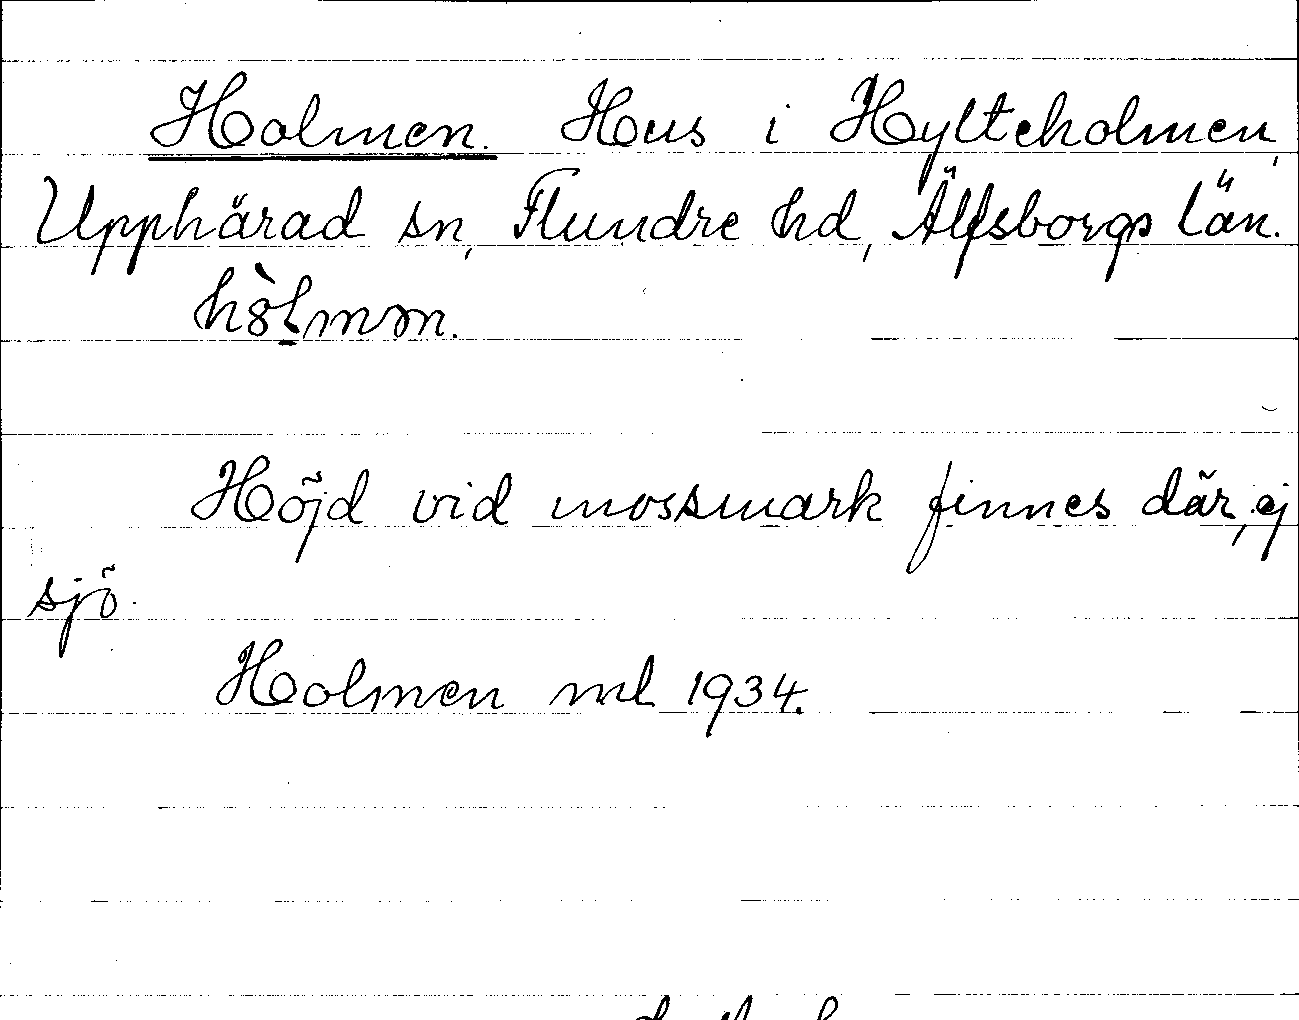 Holmen. Hus i Hylteholmen,
Upphärad sn, Flundre hd, Älfsborgs län.
Höjd vid mossmark finnes där, ej
sjö.
Holmen ml 1934.